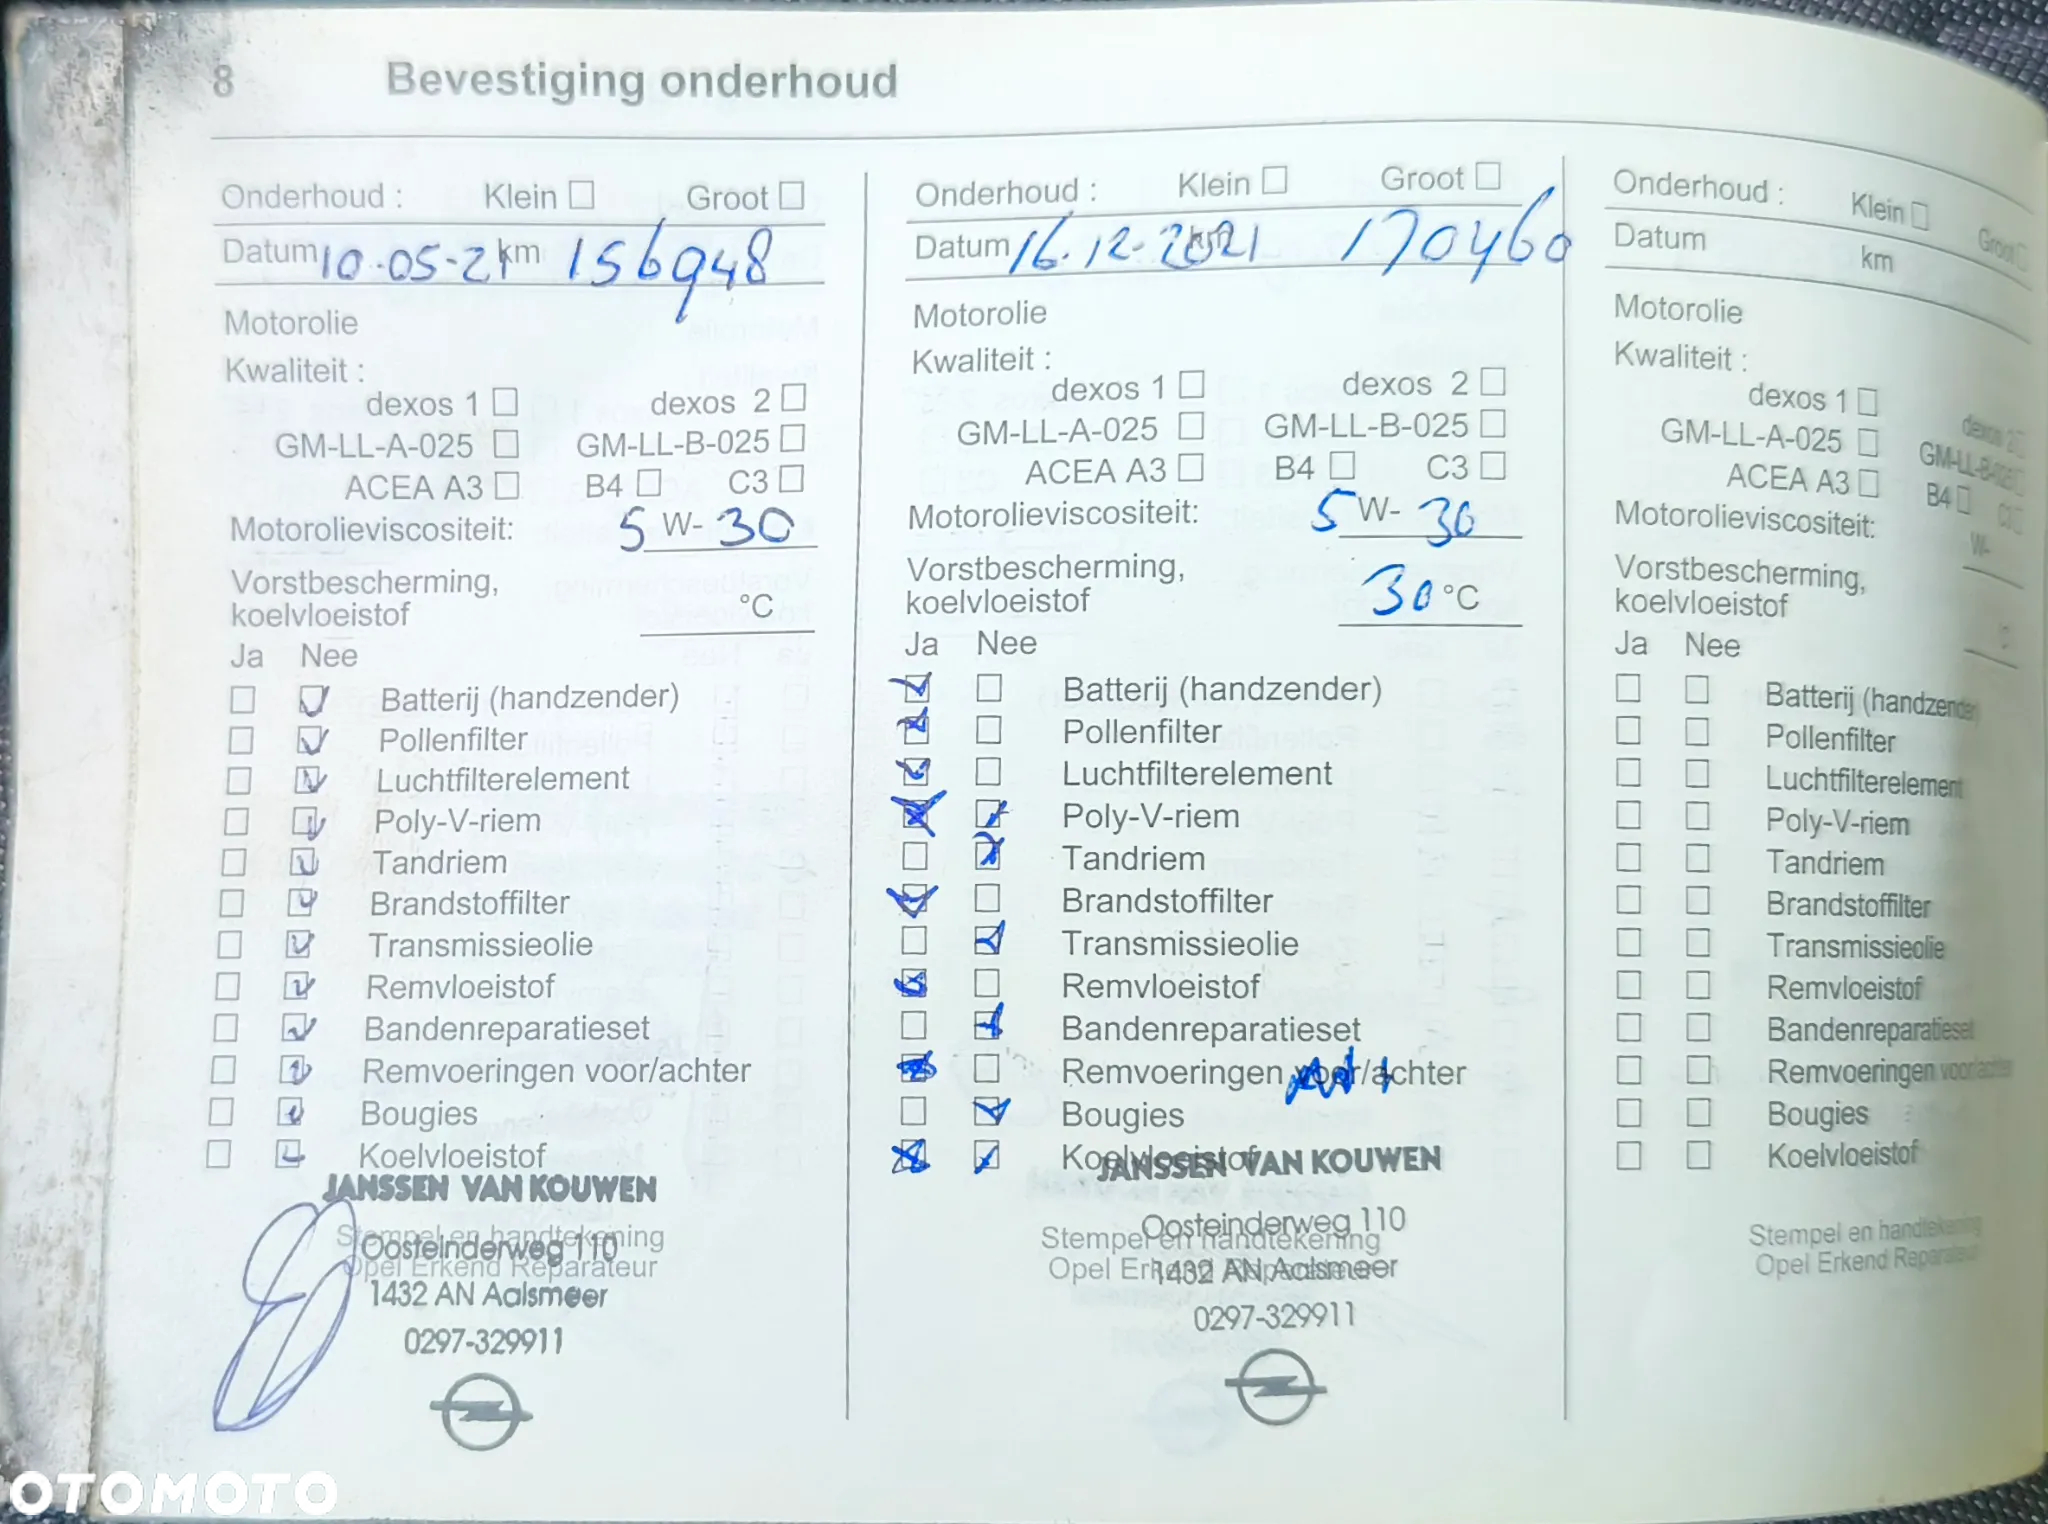 8 Bevestiging onderhoud
Onderhoud : Klein Groot
Datum 10-05-21 km 156948
Motorolie
Kwaliteit :
dexos 1 dexos 2
GM-LL-A-025 GM-LL-B-025
ACEA A3 B4 C3
Motorolieviscositeit: 5 W- 30
Vorstbescherming,
koelvloeistof °C
Ja Nee
Batterij (handzender)
Pollenfilter
Luchtfilterelement
Poly-V-riem
Tandriem
Brandstoffilter
Transmissieolie
Remvloeistof
Bandenreparatieset
Remvoeringen voor/achter
Bougies
Koelvloeistof
JANSSEN VAN KOUWEN
Stempel en handtekening
Oosteinderweg 110
Opel Erkend Reparateur
1432 AN Aalsmeer
0297-329911
Onderhoud : Klein Groot
Datum 16-12-2021 km 170460
Motorolie
Kwaliteit :
dexos 1 dexos 2
GM-LL-A-025 GM-LL-B-025
ACEA A3 B4 C3
Motorolieviscositeit: 5 W- 30
Vorstbescherming,
koelvloeistof 30 °C
Ja Nee
Batterij (handzender)
Pollenfilter
Luchtfilterelement
Poly-V-riem
Tandriem
Brandstoffilter
Transmissieolie
Remvloeistof
Bandenreparatieset
Remvoeringen voor/achter
Bougies
Koelvloeistof
JANSSEN VAN KOUWEN
Oosteinderweg 110
Stempel en handtekening
Opel Erkend Reparateur
1432 AN Aalsmeer
0297-329911
Onderhoud : Klein Groot
Datum km
Motorolie
Kwaliteit :
dexos 1 dexos 2
GM-LL-A-025 GM-LL-B-025
ACEA A3 B4 C3
Motorolieviscositeit: W-
Vorstbescherming,
koelvloeistof
Ja Nee
Batterij (handzender)
Pollenfilter
Luchtfilterelement
Poly-V-riem
Tandriem
Brandstoffilter
Transmissieolie
Remvloeistof
Bandenreparatieset
Remvoeringen voor/achter
Bougies
Koelvloeistof
Stempel en handtekening
Opel Erkend Reparateur
OTOMOTO